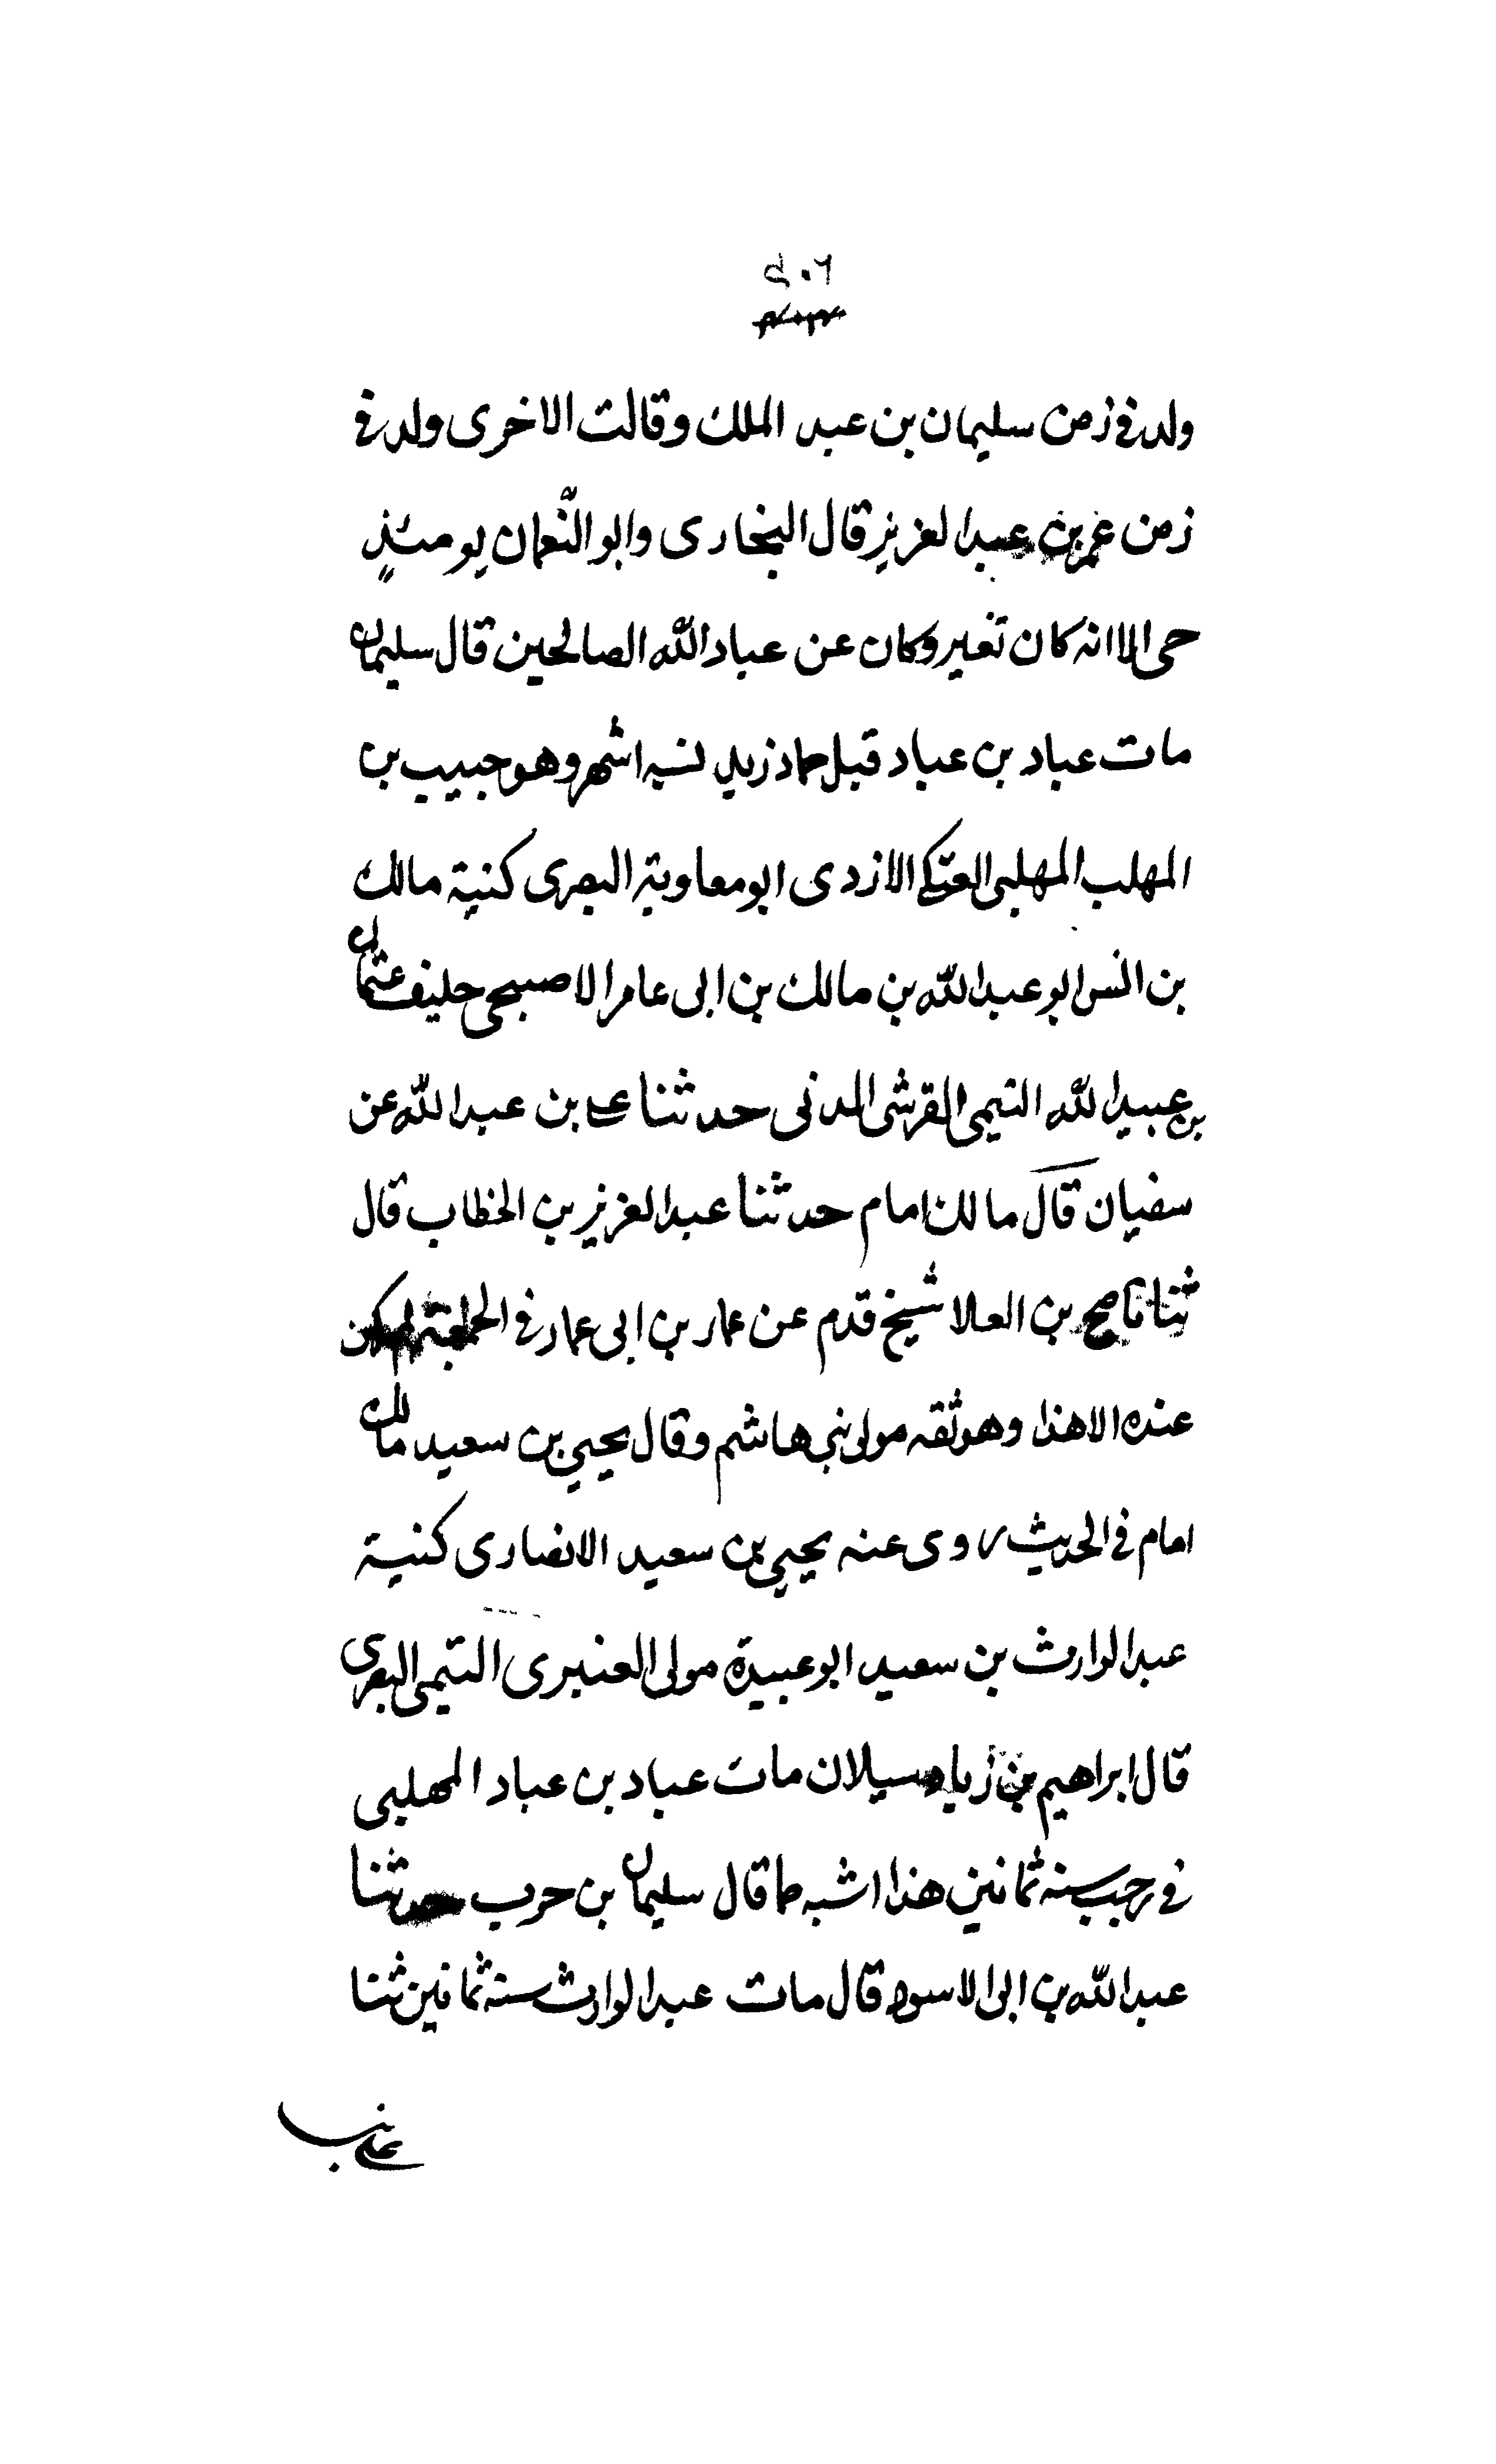 ٢٠٥
ولد في زمن سليمان بن عبد الملك وقالت الاخرى ولد في
زمن عمر بن عبد العزيز قال البخارى وابو النّعمان يومئذٍ
حى الا انه كان تغير وكان عن عباد الله الصالحين قال سليمان
مات عباد بن عباد قبل حماد زيد لستة اشهر وهو حبيب بن
المهلب المهلبى العتكى الازدى ابو معاوية البصرى كنية مالك
بن انس ابو عبد الله بن مالك بن ابى عامر الاصبحى حليف عثمان
بن عبيد الله التيمى القرشى المدنى حدثنا على بن عبد الله عن
سفيان قال مالك امام حدثنا عبد العزيز بن الخطاب قال
ثنا ناصح بن العلا شيخ قدم عن عمار بن ابى عمار في الجمعة لم يكن
عنده الا هذا وهو ثقه مولى بنى هاشم وقال يحيى بن سعيد مالك
امام في الحديث روى عنه يحيى بن سعيد الانصارى كنية
عبد الوارث بن سعيد ابو عبيدة مولى العنبرى التيمى البصرى
قال ابراهيم بن زياد سبلان مات عباد بن عباد المهلبى
في رجب سنه ثمانين هذا اشبه مما قال سليمان بن حرب حدثنا
عبد الله بن ابى الاسود قال مات عبد الوارث سنه ثمانين ثنا